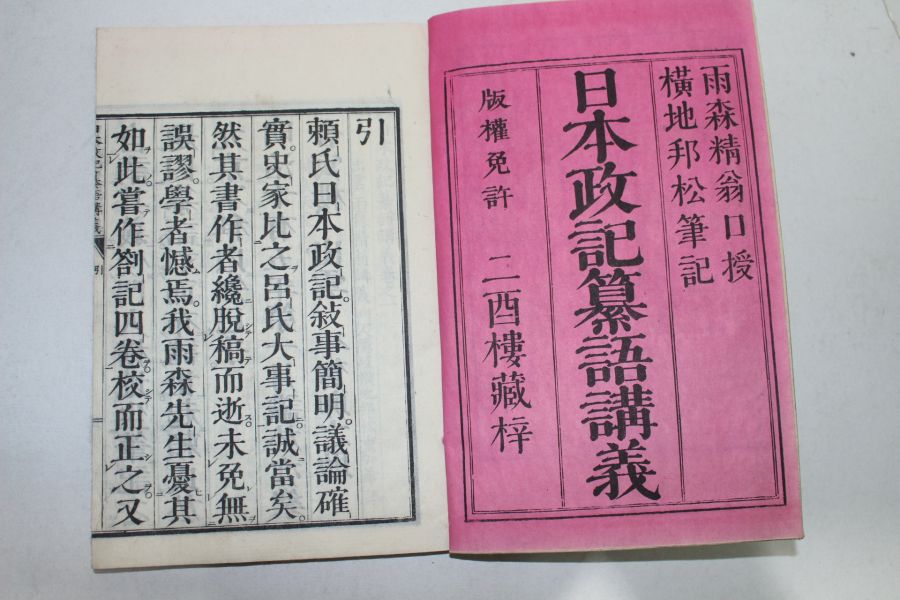 雨森精翁口授
橫地邦松筆記
日本政記纂語講義
版權免許 二酉樓藏梓
引
賴氏日本政記。敍事簡明。議論確
實。史家比之呂氏大事記。誠當矣。
然其書作者纔脫稿而逝。未免無
誤謬。學者憾焉。我雨森先生憂其
如此。嘗作劄記四卷。校而正之。又